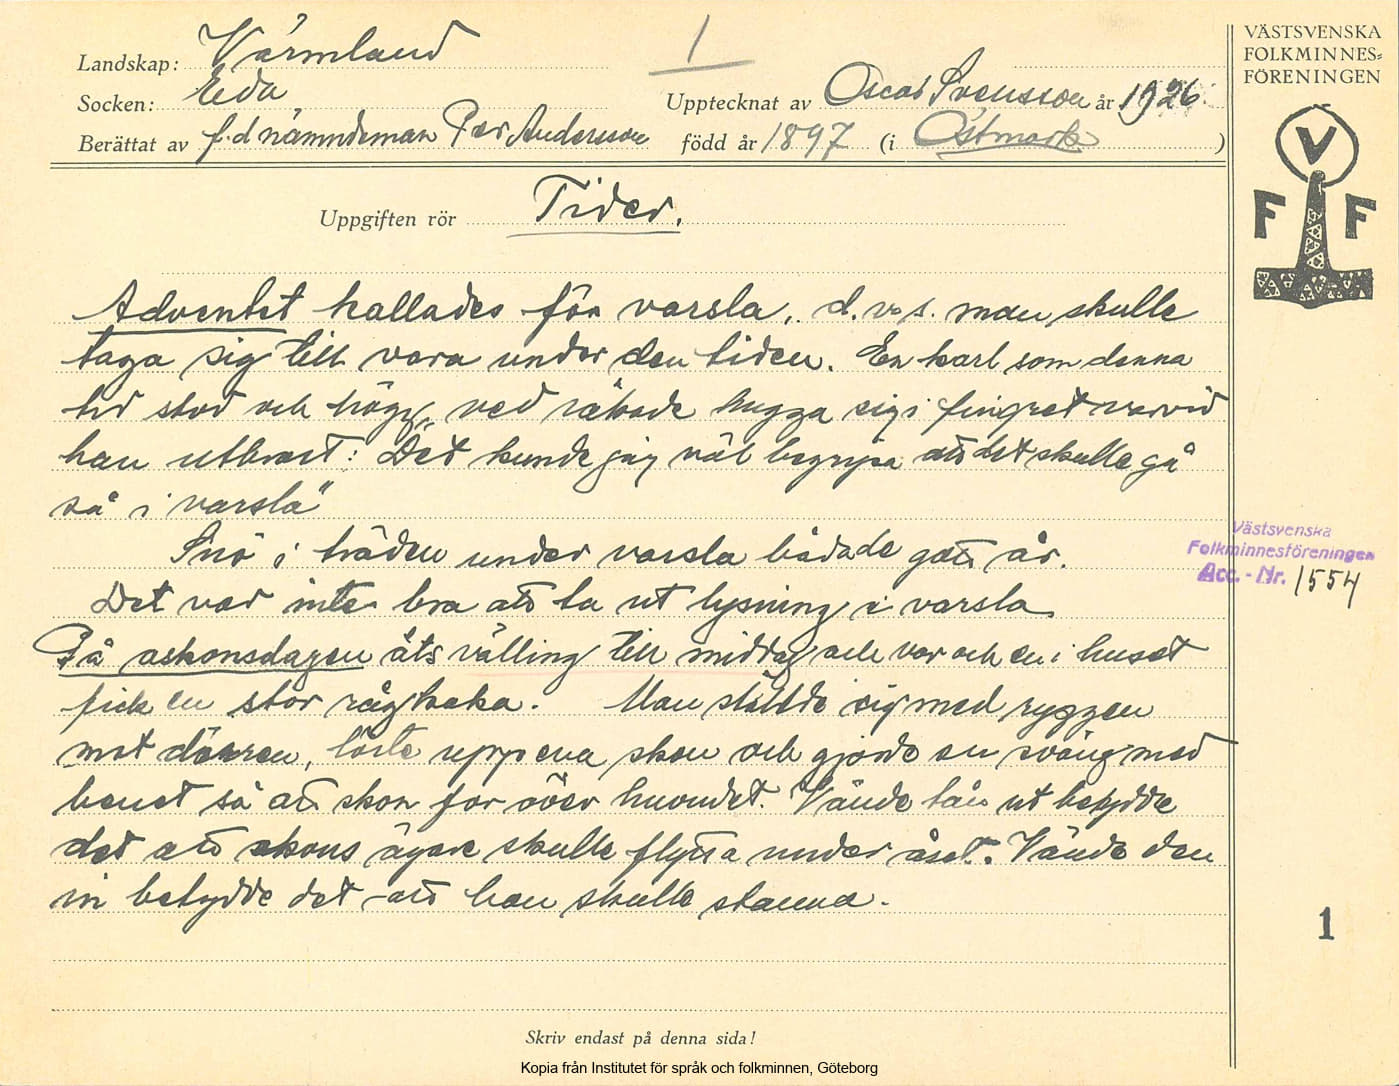 Landskap: Värmland
Socken: Eda
Berättat av f.d nämndeman Per Andersson
1
Upptecknat av Oscar Svensson år 1926
född år 1897 (i Östmark )
Uppgiften rör Tider.
Adventet kallades för varsla, d.v.s. man skulle
taga sig till vara under den tiden. En karl som denna
tid stod och högg ved råkade hugga sig i fingret varvid
han utbrast: "Det kunde jag väl begripa att det skulle gå
så i varsla"
Snö i träden under varsla bådade gott år.
Det var inte bra att ta ut lysning i varsla.
På askonsdagen äts välling till middag och var och en i huset
fick en stor rågkaka. Man ställde sig med ryggen
mot dörren, löste upp ena skon och gjorde en sväng med
benet så att skon for över huvudet. Vände tån ut betydde
det att skons ägare skulle flytta under året. Vände den
in betydde det att han skulle stanna.
Skriv endast på denna sida!
VÄSTSVENSKA
FOLKMINNES=
FÖRENINGEN
V
F F
Västsvenska
Folkminnesföreningen
Acc. - Nr. 1554
1
Kopia från Institutet för språk och folkminnen, Göteborg